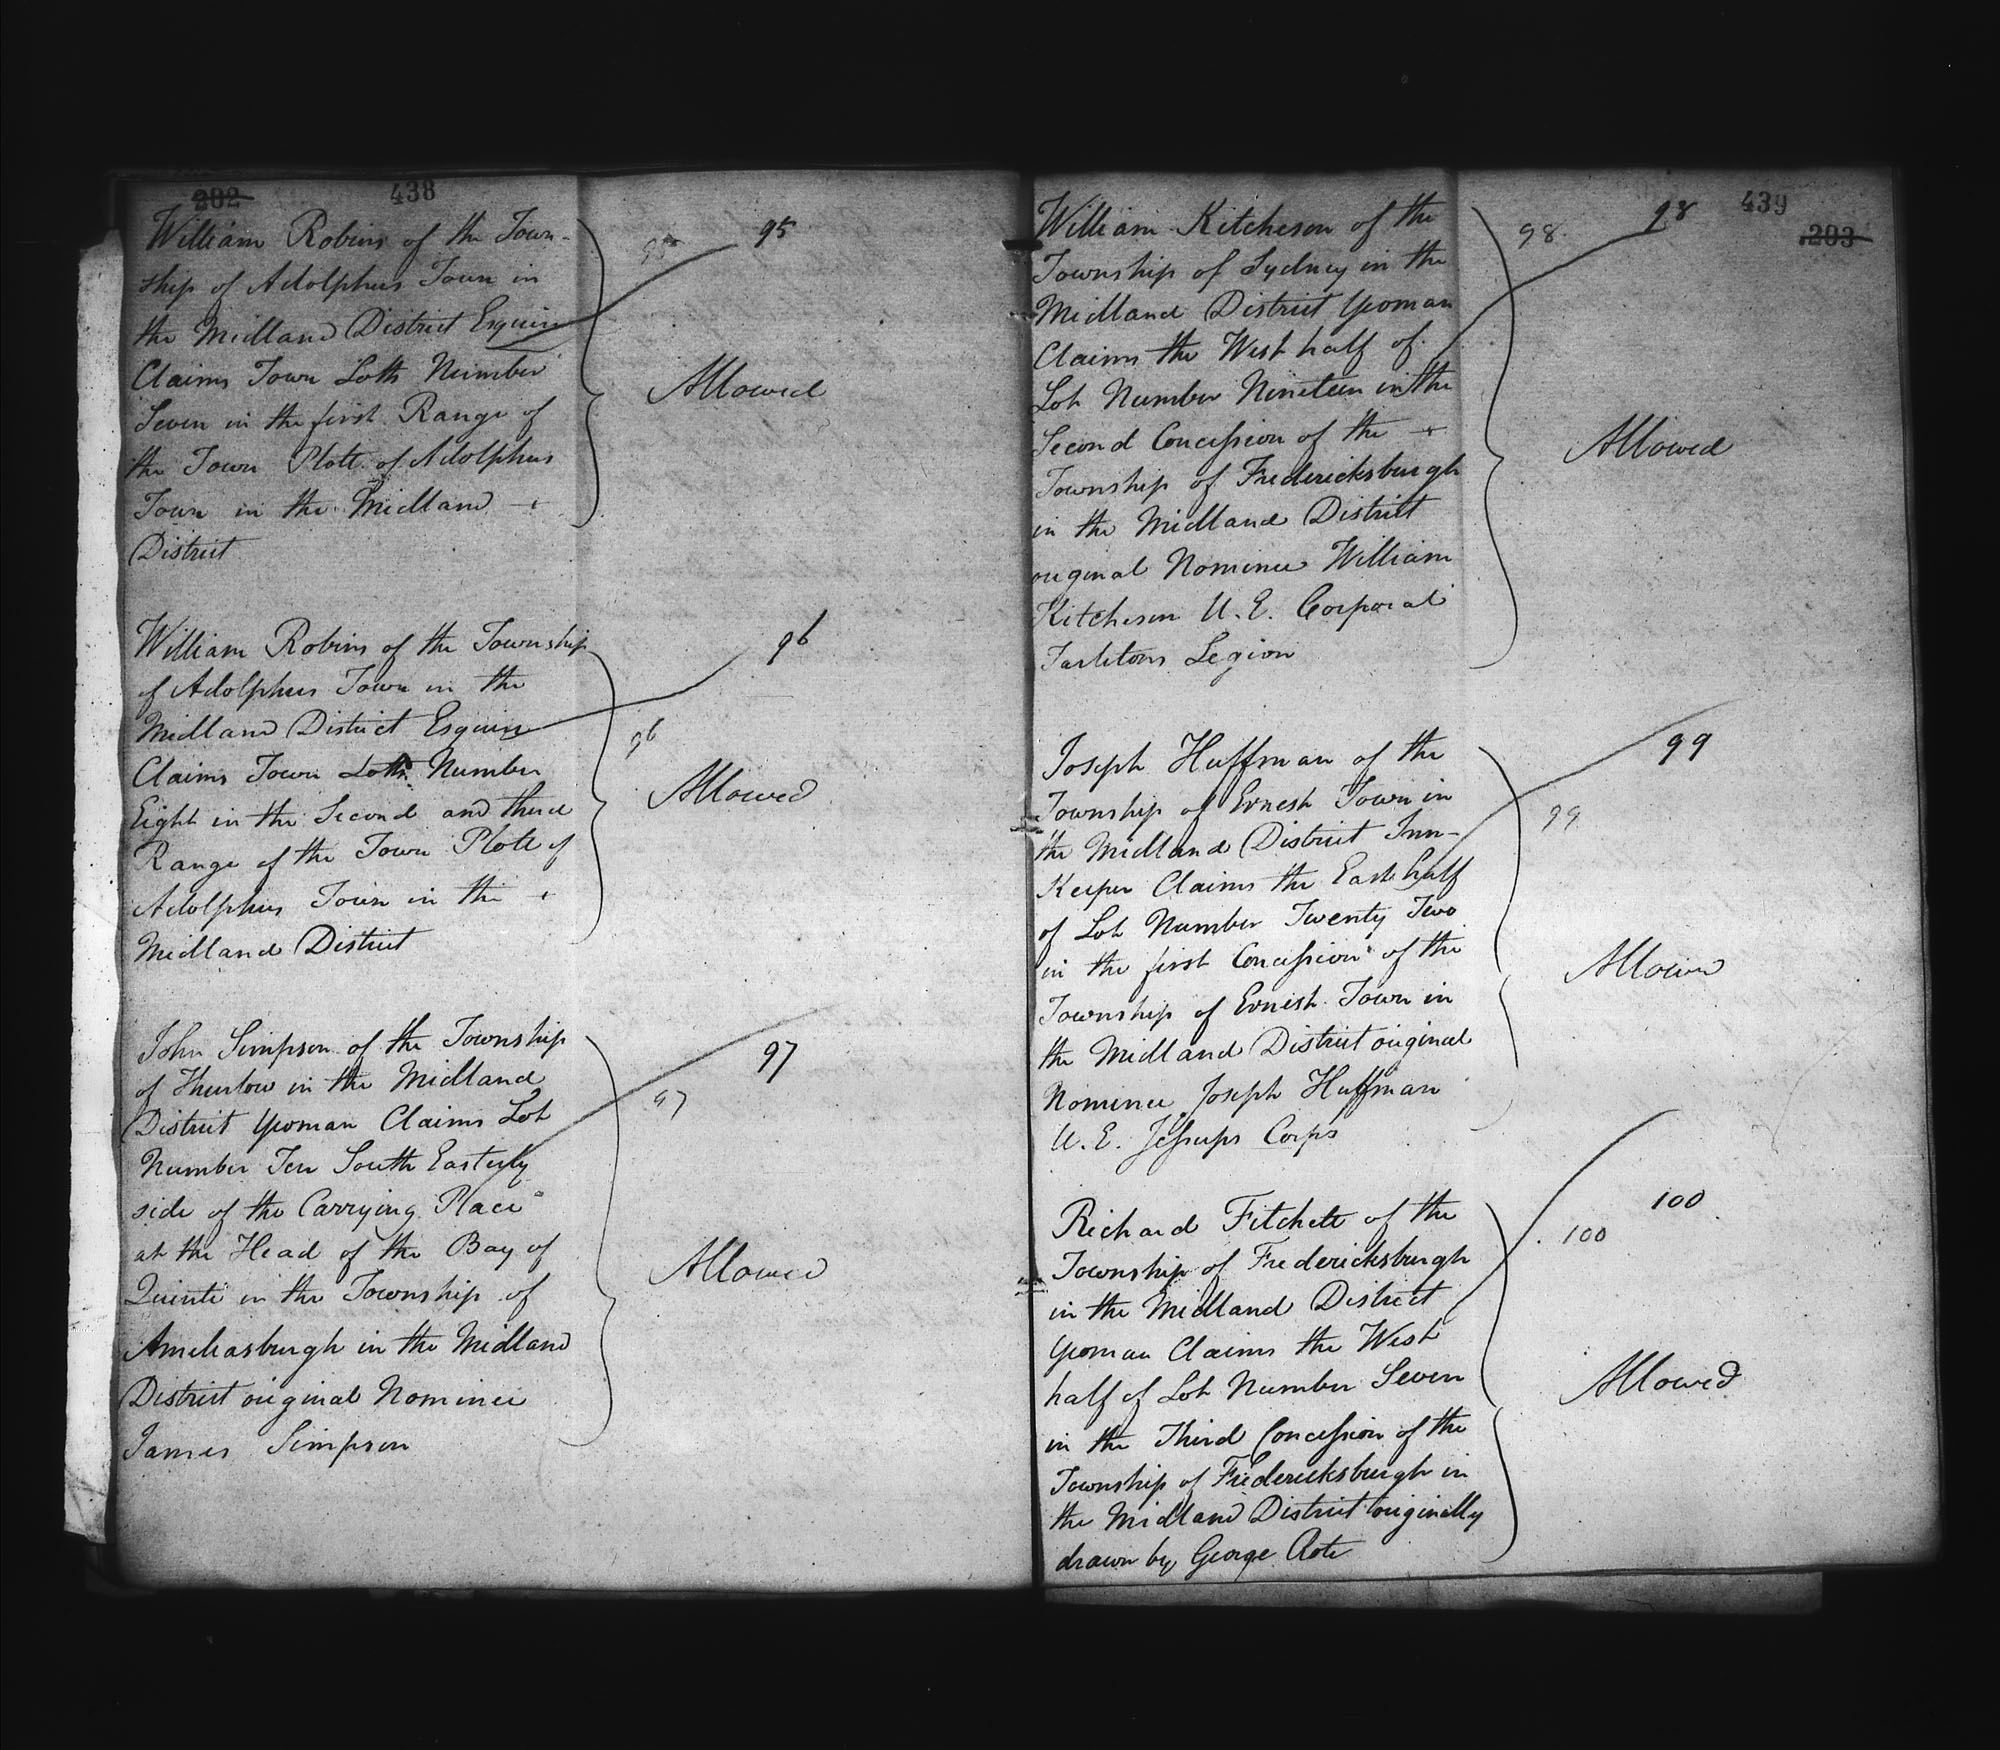 202 438
William Robins of the Town-
ship of Adolphus Town in
the Midland District Esquire
Claims Town Lotts Number
Seven in the first Range of
the Town Plott of Adolphus
Town in the Midland
District
95 95
Allowed
William Robins of the Township
of Adolphus Town in the
Midland District Esquire
Claims Town Lotts Number
Eight in the Second and third
Range of the Town Plott of
Adolphus Town in the
Midland District
96
96
Allowed
John Simpson of the Township
of Thurlow in the Midland
District Yeoman Claims Lot
Number Ten South Easterly
side of the Carrying Place
at the Head of the Bay of
Quinte in the Township of
Ameliasburgh in the Midland
District original Nominee
James Simpson
97
97
Allowed
439
203
William Kitcheson of the
Township of Sydney in the
Midland District Yeoman
Claims the West half of
Lot Number Nineteen in the
Second Concession of the
Township of Fredericksburgh
in the Midland District
original Nominee William
Kitcheson U. E. Corporal
Tarletons Legion
98 98
Allowed
Joseph Huffman of the
Township of Ernest Town in
the Midland District Inn-
Keeper Claims the East half
of Lot Number Twenty Two
in the first Concession of the
Township of Ernest Town in
the Midland District original
Nominee Joseph Huffman
U. E. Jessups Corps
99
99
Allowed
Richard Fitchett of the
Township of Fredericksburgh
in the Midland District
Yeoman Claims the West
half of Lot Number Seven
in the Third Concession of the
Township of Fredericksburgh in
the Midland District originally
drawn by George
100
100
Allowed